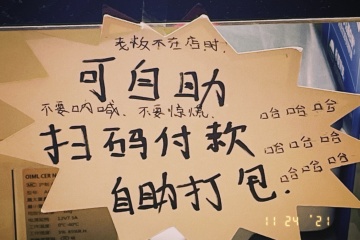 老板不在店时,
可自助
不要呐喊、不要惊慌,
哈哈哈
扫码付款
哈哈哈
哈哈哈
自助打包.
11 24 '21